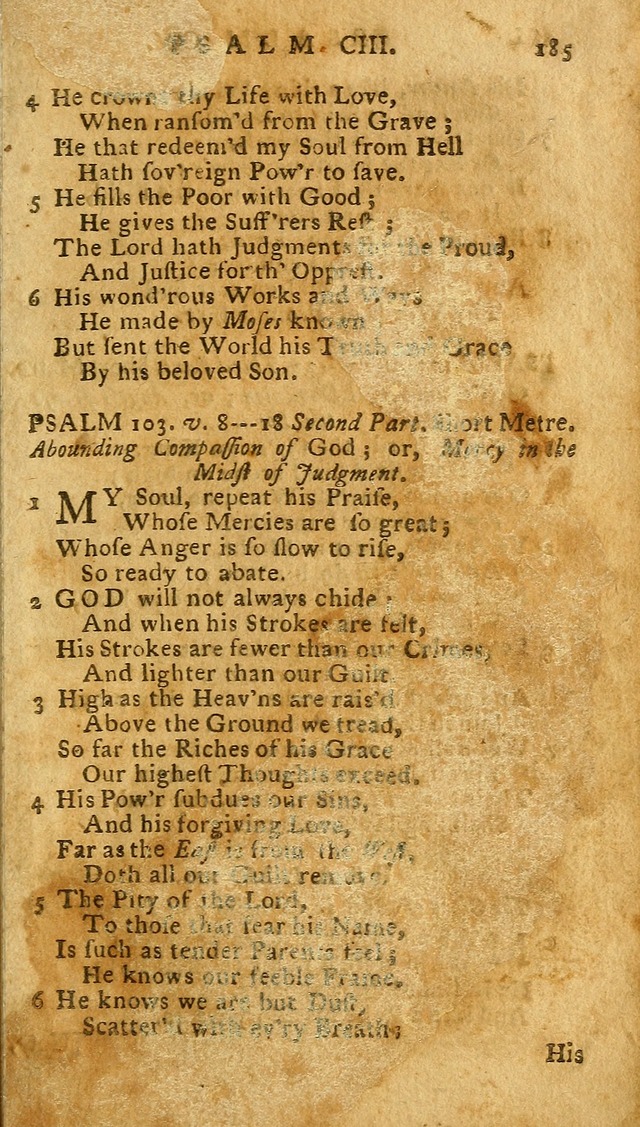 PSALM. CIII. 185
4 He crowns thy Life with Love,
When ranſom'd from the Grave ;
He that redeem'd my Soul from Hell
Hath ſov'reign Pow'r to ſave.
5 He fills the Poor with Good ;
He gives the Suff'rers Reſt ;
The Lord hath Judgments for the Proud,
And Juſtice for th' Oppreſt.
6 His wond'rous Works and Ways
He made by Moſes known
But ſent the World his Truth and Grace
By his beloved Son.
PSALM 103. v. 8---18 Second Part. Short Metre.
Abounding Compaſſion of God ; or, Mercy in the
Midſt of Judgment.
1 MY Soul, repeat his Praiſe,
Whoſe Mercies are ſo great ;
Whoſe Anger is ſo ſlow to riſe,
So ready to abate.
2 GOD will not always chide ;
And when his Strokes are felt,
His Strokes are fewer than our Crimes,
And lighter than our Guilt
3 High as the Heav'ns are rais'd
Above the Ground we tread,
So far the Riches of his Grace
Our higheſt Thoughts exceed.
4 His Pow'r ſubdues our Sins,
And his forgiving Love,
Far as the Eaſt is from the Weſt,
Doth all our Guilt remove.
5 The Pity of the Lord,
To thoſe that fear his Name,
Is ſuch as tender Parents feel ;
He knows our feeble Frame.
6 He knows we are but Duſt,
Scatter'd with ev'ry Breath ;
His